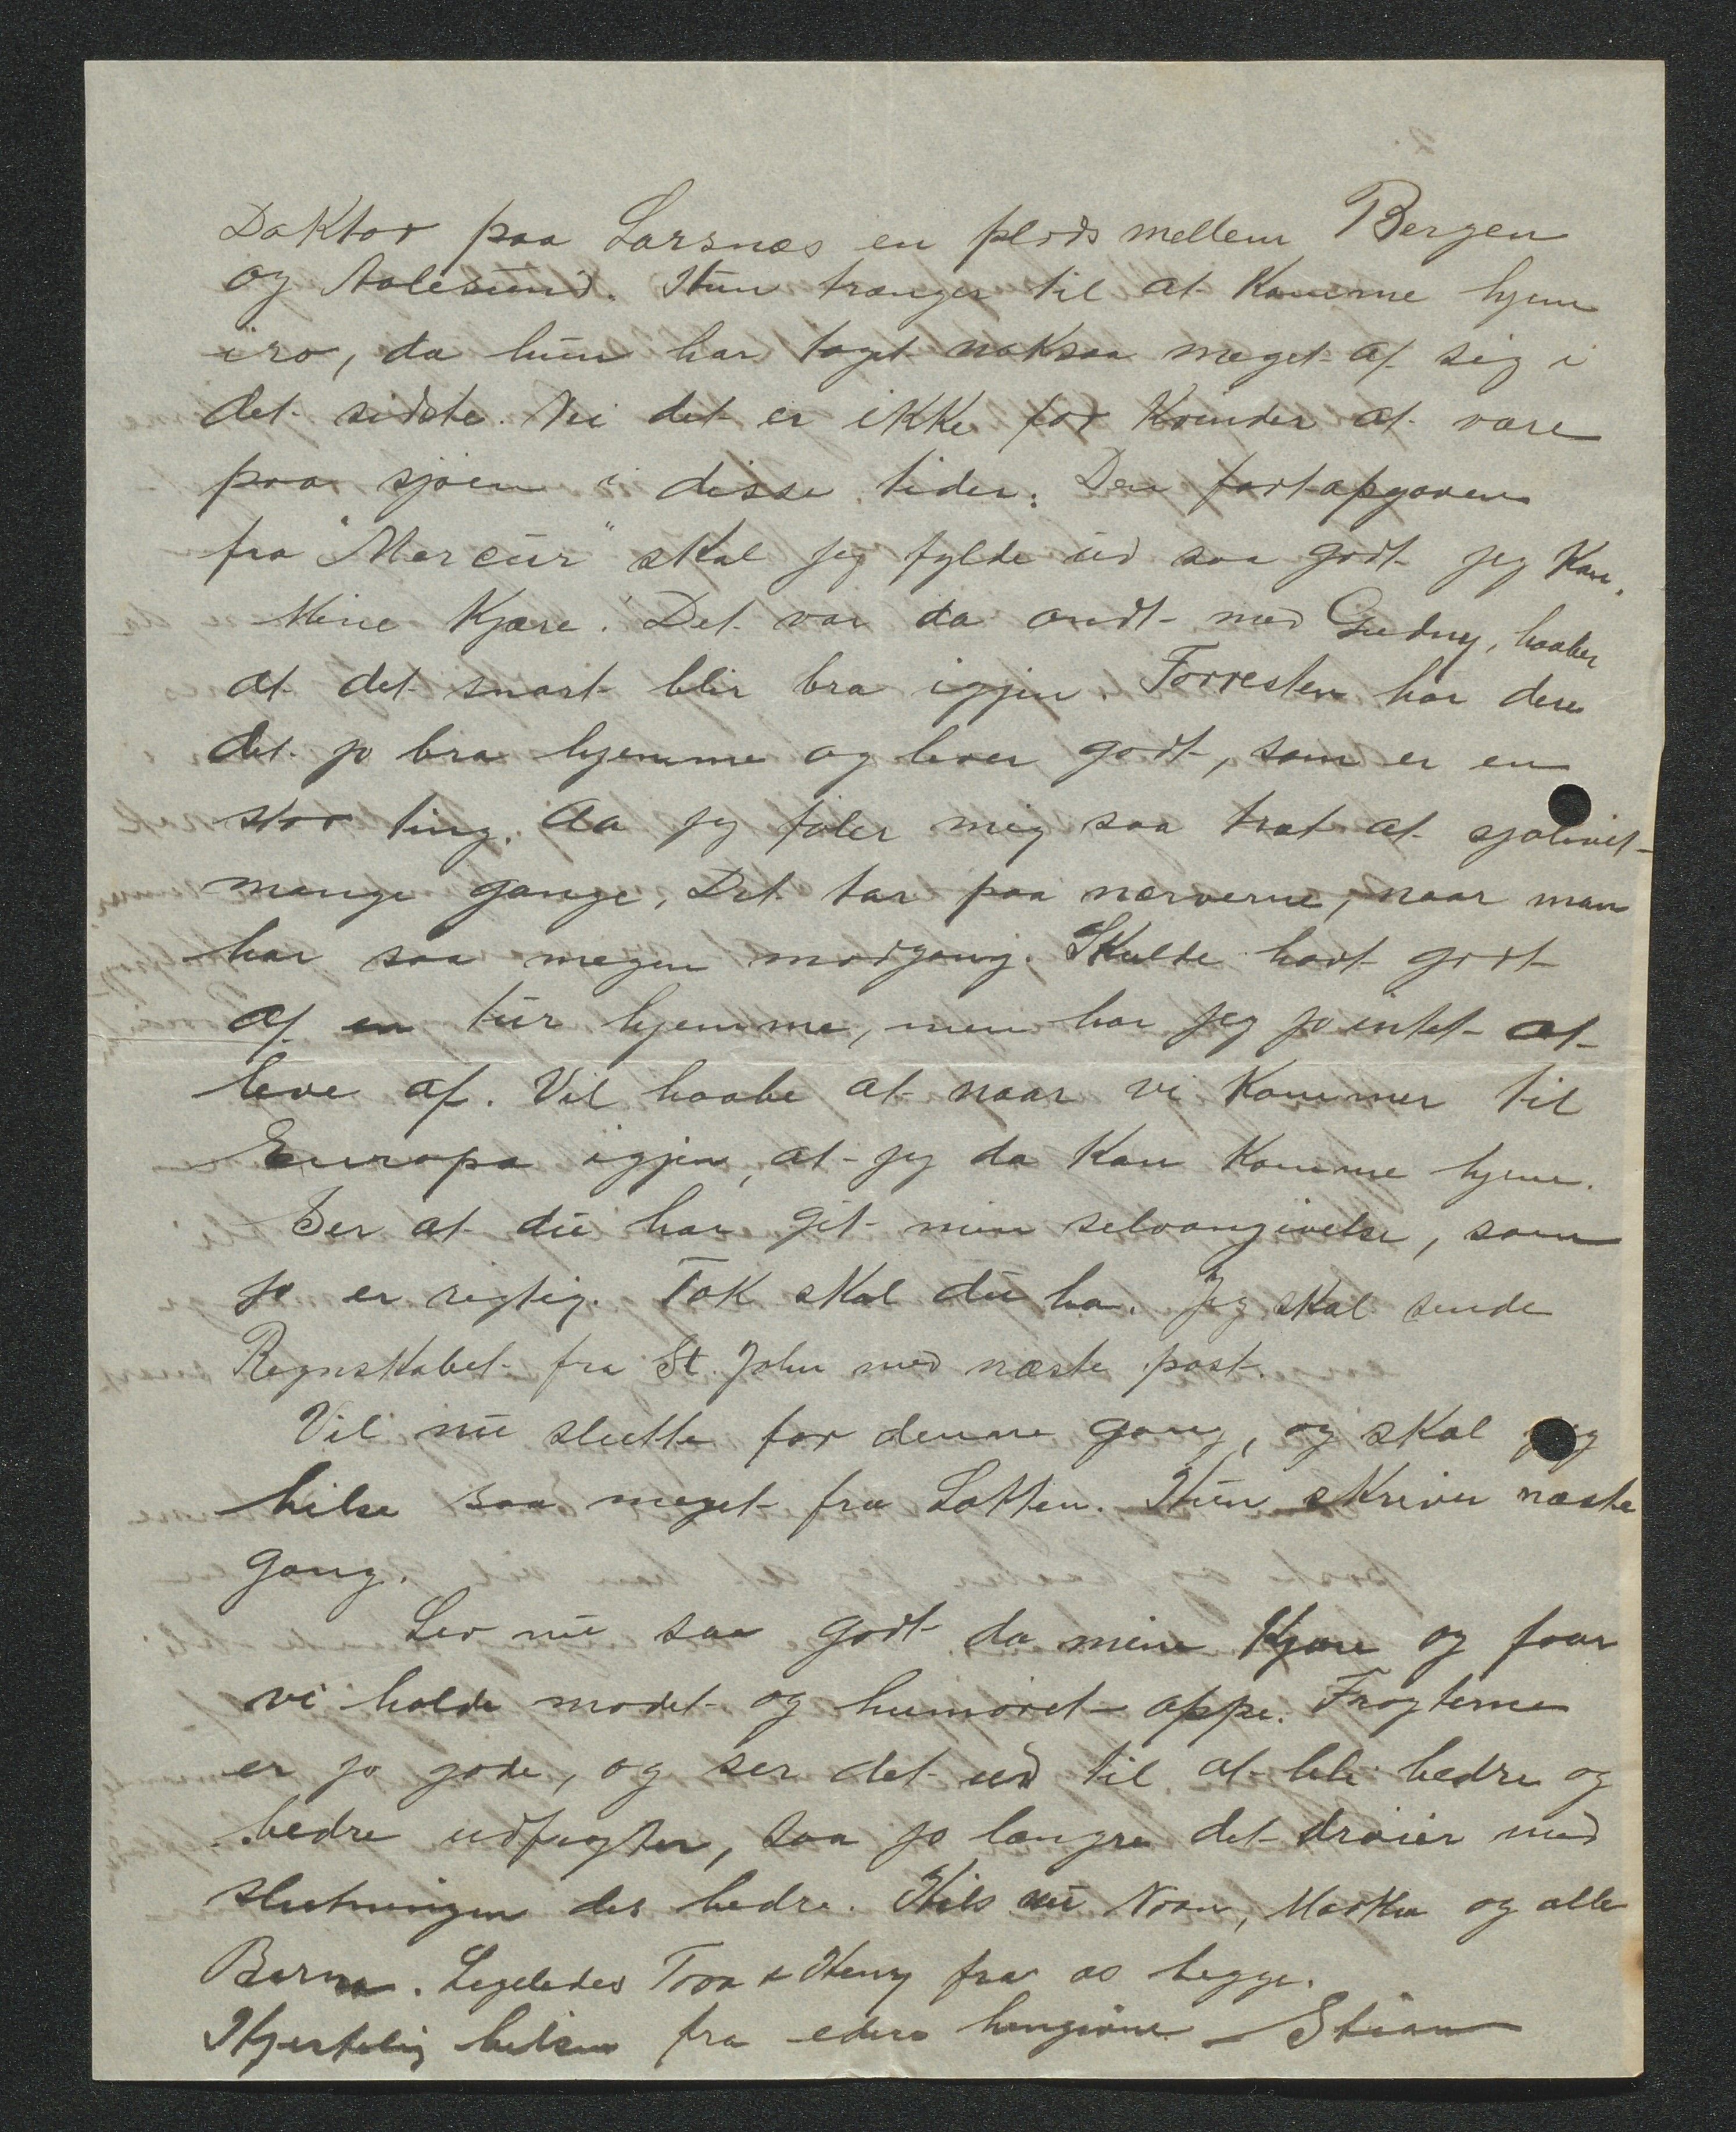 Doktor paa Larsnæs en plads mellem Bergen
og Aalesund. Hun trænger til at komme hjem
i ro, da hun har taget noksaa meget af sig i
det sidste. Nei det er ikke for kvinder at være
paa sjøen i disse tider. Den fartopgaven
fra "Mercur" skal jeg fylde ud saa godt jeg kan.
Mine Kjære. Det var da ondt med Gudny, haaber
at det snart blir bra igjen. Forresten har dere
det jo bra hjemme og lever godt, som er en
stor ting. Da jeg føler mig saa træt af sjølivet
mange gange. Det tar paa nærverne, naar man
har saa megen modgang. Skulde havt godt
af en tur hjemme, men har jeg jo intet at
leve af. Vil haabe at naar vi kommer til
Europa igjen, at jeg da kan komme hjem.
Ser at du har git min selvangivelse, som
jo er rigtig. Tak skal du ha. Jeg skal sende
Regnskabet fra St. John med næste post.
Vil nu slutte for denne gang, og skal jeg
hilse saa meget fra Lotten. Hun skriver næste
gang.
Lev nu saa godt da mine Kjære og faar
vi holde modet og humøret oppe. Fragterne
er jo gode, og ser det ud til at bli bedre og
bedre udfragter, saa jo længre det drøier med
slutningen des bedre. Hils nu Moan, Marthe og alle
Barna. Ligeledes Tora & Henry fra os begge.
Hjertelig hilsen fra eders hengivne Stian